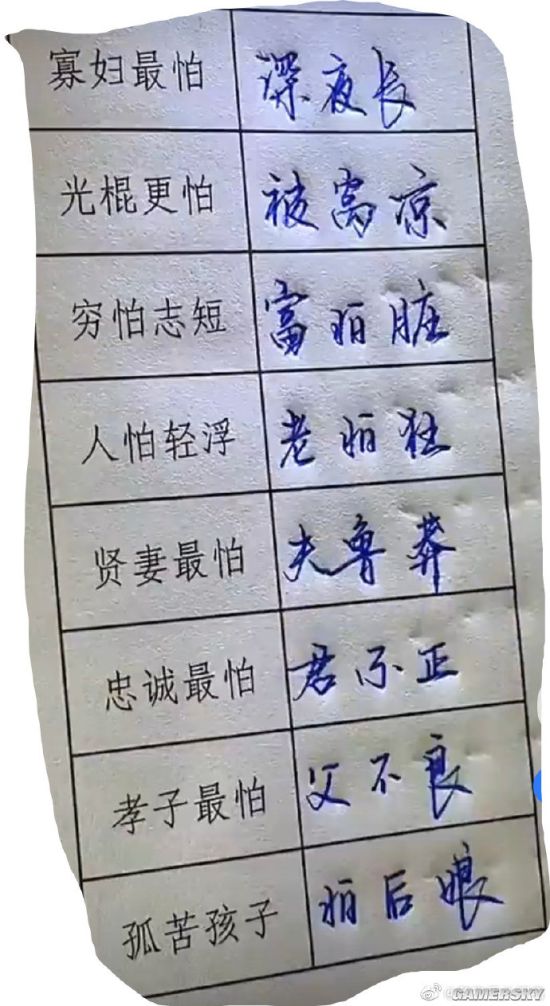 寡妇最怕 深夜长
光棍更怕 被窝凉
穷怕志短 富怕脏
人怕轻浮 老怕狂
贤妻最怕 夫鲁莽
忠诚最怕 君不正
孝子最怕 父不良
孤苦孩子 怕后娘
GAMERSKY